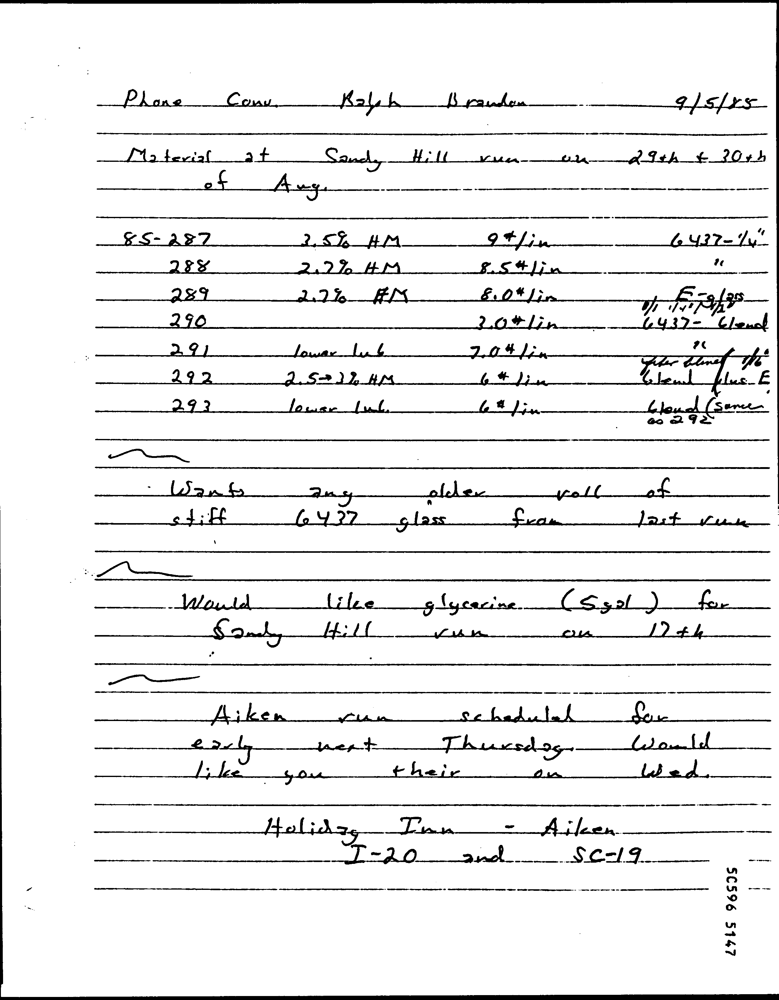 Phone Conv. Ralph Brandon 9/5/85
Material at Sandy Hill run on 29th & 30th
of Aug.
85-287 3.5% HM 9#/in 6437-1/4"
288 2.7% HM 8.5#/in "
289 2.7% HM 8.0#/in E-glass
290 3.0#/in 6437- blend
291 lower lub 7.0#/in "
292 2.5→3% HM 6#/in blend plus E
293 lower lub. 6#/in blend (same
as 292
Wants any older roll of
stiff 6437 glass from last run
Would like glycerine (5gal) for
Sandy Hill run on 17th
Aiken run scheduled for
early next Thursday. Would
like you their on Wed.
Holiday Inn - Aiken
I-20 and SC-19
SC596 5147